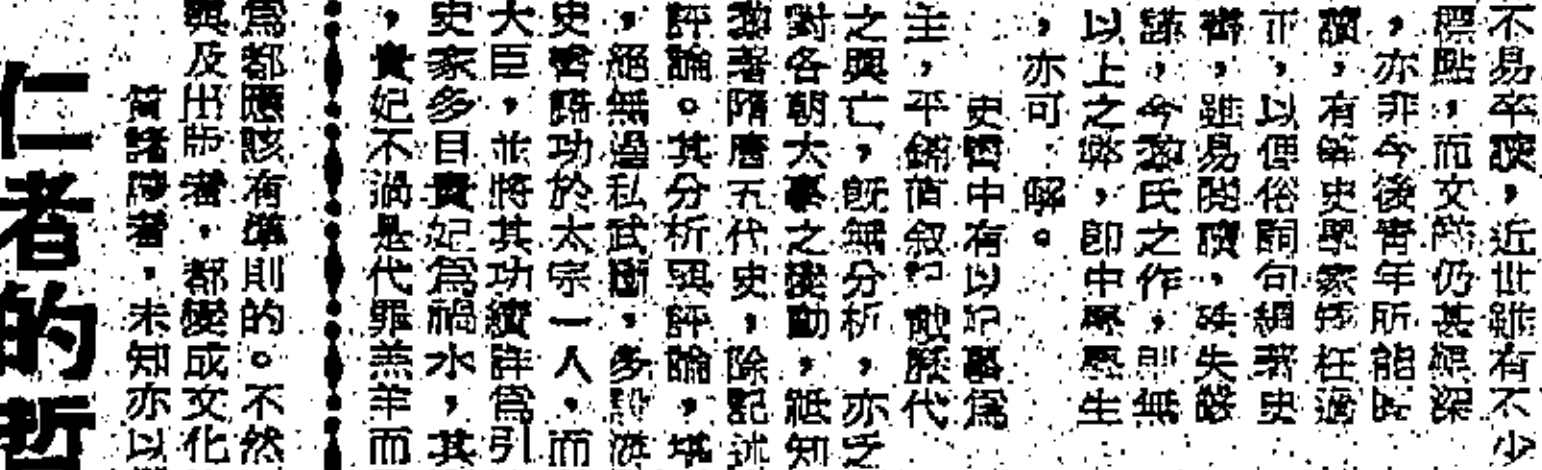 不易卒讀，近世雖有不少
標點，而文字仍甚艱深
，亦非今後青年所能時
讀，有等史學家矯枉過
正，以俚俗詞句編著史
書，雖易閱讀，殊失謹
，今黎氏之作，則無
以上之弊，即中學學生
，亦可解。
史書中有以記事為
主，平鋪直叙記載歷代
之興亡，既無分析，亦乏
對各朝大事之變動，祗知
著隋唐五代史，除記述
評論。其分析與評論，堪
，絕無過私武斷，多
史書歸功於太宗一人，而
大臣，並將其功績詳為引
史家多目貴妃為禍水，其
，貴妃不過是代罪羔羊而
為都應該有準則的。不然
及出版者，都變成文化
質諸陳者，未知亦以
仁者的哲